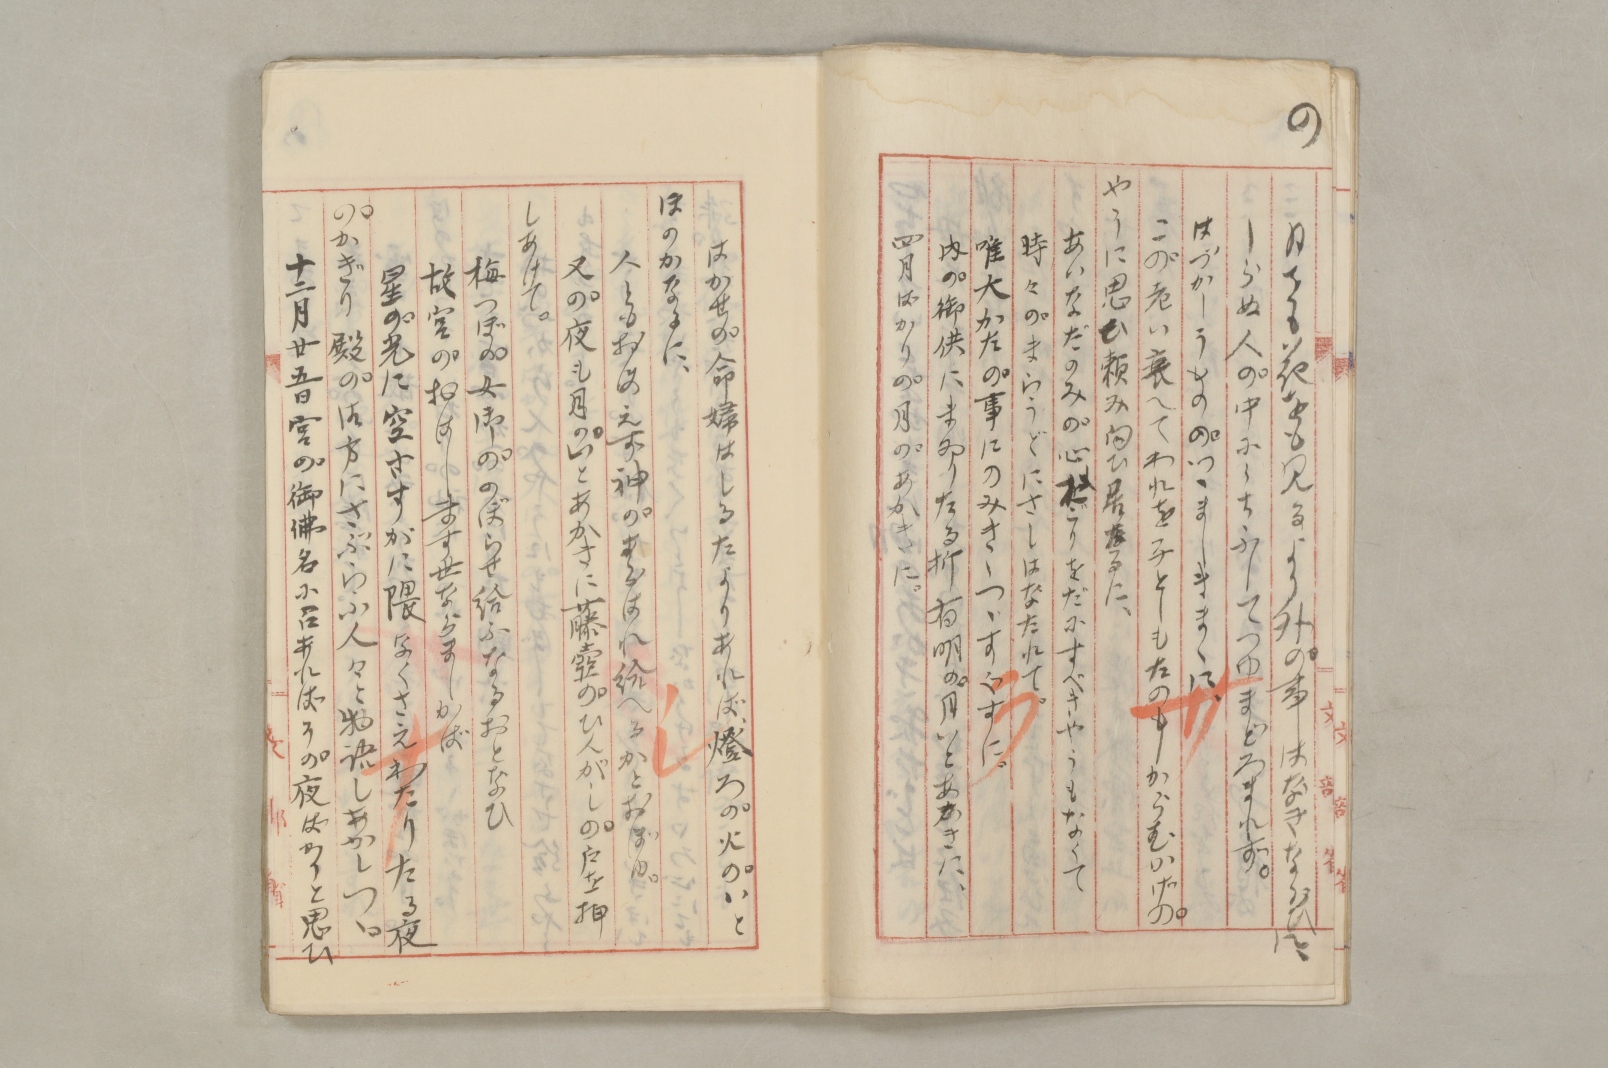 の
月をも花をも見るより外の事はなきならひに、
しらぬ人の中にうちふしてつゆまどろまれず。
はづかしうものゝつゝましきまゝに、
このおい衰へてわれを子としもたのもしからむかげの
やうに思ひ頼み向ひ居たるに、
あいなだのみの心おごりをだにすべきやうもなくて
時々のまらうどにさしはなたれて。
唯大かたの事にのみきゝつゝすぐすに。
内の御供にまゐりたる折有明の月いとあかきに、
四月ばかりの月のあかきに。
はかせの命婦はしるたよりあれば、燈ろの火のいと
ほのかなるに、
人ともおぼえず神のあらはれ給へるかとおぼゆ。
又の夜も月のいとあかきに藤壺のひんがしの戸を押
しあけて。
梅つぼの女御ののぼらせ給ふなるおとなひ
故宮のおはします世ならましかば
星の光に空さすがに隈なくさえわたりたる夜
のかぎり殿の御方にさぶらふ人々と物語しあかしつゝ
十二月廿五日宮の御佛名に召あればその夜ばかりと思ひ
サ
ラ
シ
ナ
文部省
文部省